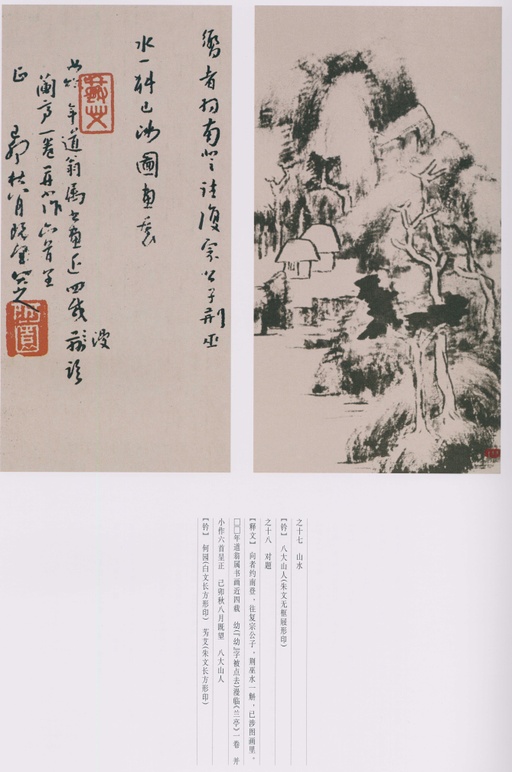 嚮者約南登往復宗公子荆巫
水一科已涉圖畫裏
年道翁屬書畫近四載
漫臨
蘭亭一卷并小作六首呈
正 己卯秋八月既望 八大山人
何園
之十七 山水
【钤】 八大山人(朱文无框屐形印)
之十八 对题
【释文】 向者约南登，往复宗公子，则巫水一觞，已涉图画里。
□□年道翁属书画近四载 幼(『幼』字被点去)漫临《兰亭》一卷 并
小作六首呈正 己卯秋八月既望 八大山人
【钤】 何园(白文长方形印) 芴艾(朱文长方形印)